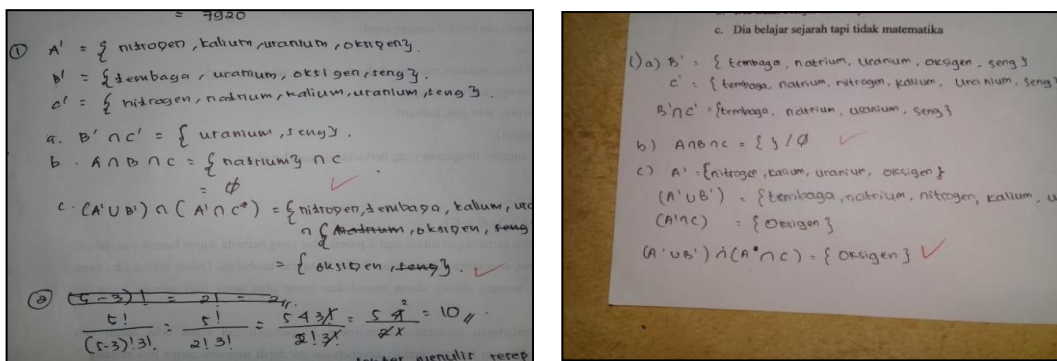 = 7920
① A' = { nitrogen, kalium, uranium, oksigen}.
B' = { tembaga, uranium, oksigen, seng}.
C' = { nidrogen, natrium, kalium, uranium, seng}
a. B' ∩ C' = { uranium, seng}.
b. A ∩ B ∩ C = { natrium} ∩ C
= ∅
c. (A' ∪ B') ∩ (A' ∩ C) = { nitrogen, tembaga, kalium, ura
∩ { natrium, oksigen, seng
= { oksigen, seng}.
② (5-3)! = 2! = 2
5!/(5-3)!3! = 5!/2!3! = 5 4 3!/2! 3! = 5 4 2/2 x = 10 //.
menulis resep
c. Dia belajar sejarah tapi tidak matematika
1) a) B' = { tembaga, natrium, uranium, oksigen, seng}
C' = { tembaga, natrium, nitrogen, kalium, uranium, seng}
B' ∩ C' = {tembaga, natrium, uranium, seng}
b) A ∩ B ∩ C = { } / ∅
c) A' = {nitrogen, kalium, uranium, oksigen}
(A' ∪ B') = {tembaga, natrium, nitrogen, kalium, u
(A' ∩ C) = { Oksigen }
(A' ∪ B') ∩ (A' ∩ C) = { Oksigen }